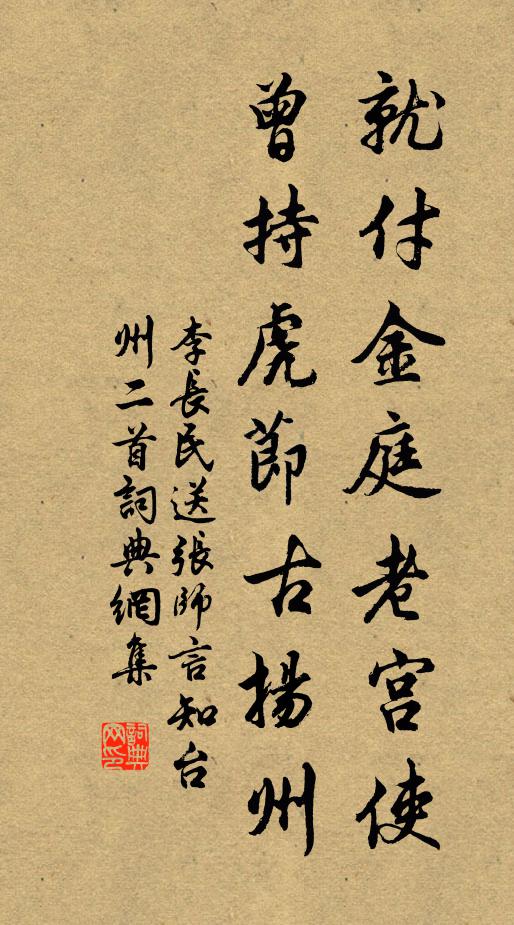 就付金庭老宫使
曾持虎節古揚州
李長民送張師言知台
州二首詞典網集
詞典
网印